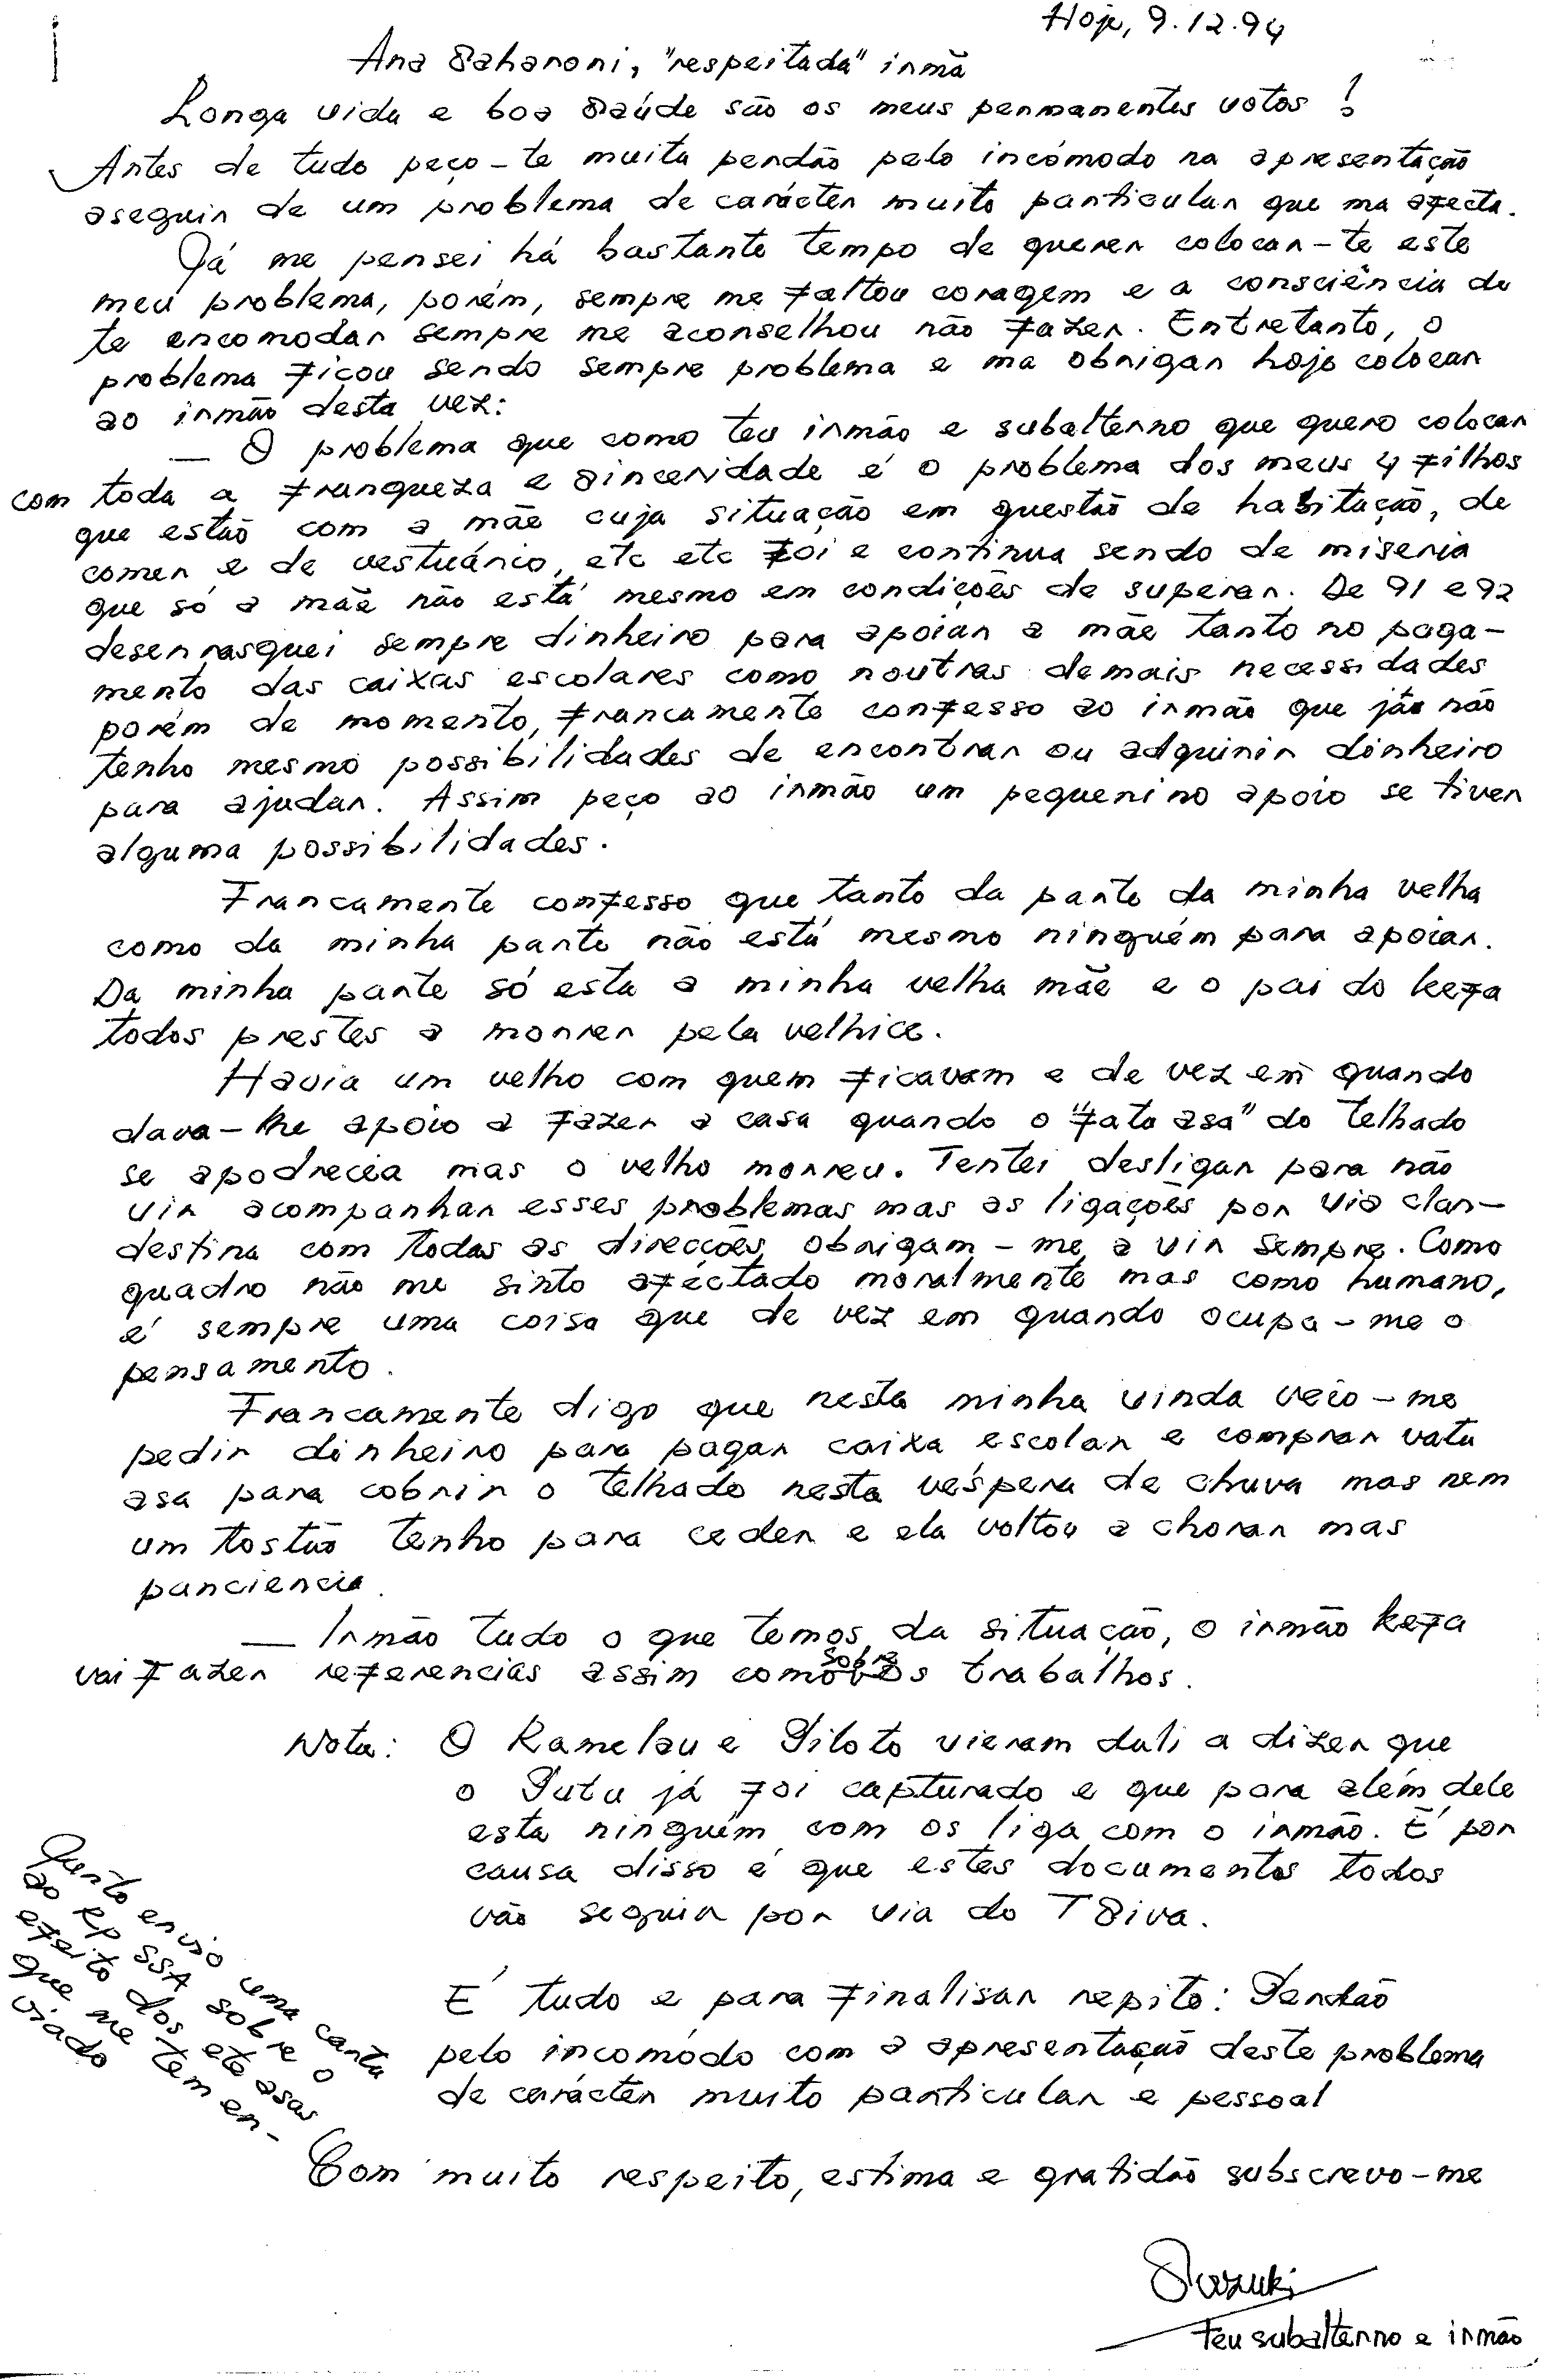 Hoje, 9.12.94
Ana Sahanoni, "respeitada" irmã
Longa vida e boa saúde são os meus permanentes votos!
Antes de tudo peço-te muita perdão pelo incómodo na apresentação
aseguir de um problema de carácter muito particular que ma afecta.
Já me pensei há bastante tempo de querer colocar-te este
meu problema, porém, sempre me faltou coragem e a consciência de
te encomodar sempre me aconselhou não fazer. Entretanto, o
problema ficou sendo sempre problema e ma obrigar hoje colocar
ao irmão desta vez:
— O problema que como teu irmão e subalterno que quero colocar
com toda a franqueza e sinceridade é o problema dos meus 4 filhos
que estão com a mãe cuja situação em questão de habitação, de
comer e de vestuário, etc etc foi e continua sendo de miseria
que só a mãe não está mesmo em condições de superar. De 91 e 92
desenrasquei sempre dinheiro para apoiar a mãe tanto no paga-
mento das caixas escolares como noutras demais necessidades
porém de momento, francamente confesso ao irmão que já não
tenho mesmo possibilidades de encontrar ou adquirir dinheiro
para ajudar. Assim peço ao irmão um pequenino apoio se tiver
alguma possibilidades.
Francamente confesso que tanto da parte da minha velha
como da minha parte não está mesmo ninguém para apoiar.
Da minha parte só esta a minha velha mãe e o pai do kefa
todos prestes a morrer pela velhice.
Havia um velho com quem ficavam e de vez em quando
dava-lhe apoio a fazer a casa quando o "fata asa" do telhado
se apodrecia mas o velho morreu. Tentei desligar para não
vir acompanhar esses problemas mas as ligações por via clan-
destina com todas as direcções, obrigam-me a vir sempre. Como
quadro não me sinto aféctado moralmente mas como humano,
é sempre uma coisa que de vez em quando ocupa-me o
pensamento.
Francamente digo que nesta minha vinda veio-me
pedir dinheiro para pagar caixa escolar e comprar vata
asa para cobrir o telhado nesta véspera de chuva mas nem
um tostão tenho para ceder e ela voltou a chorar mas
panciencia.
— Irmão tudo o que temos da situação, o irmão kefa
vai fazer referencias assim como sobre os trabalhos.
Nota: O Ramelau e Piloto vieram dali a dizer que
o Putu já foi capturado e que para além dele
esta ninguém com os liga com o irmão. É por
causa disso é que estes documentos todos
vão seguir por via do T Siva.
Junto envio uma carta
ao RP SSA sobre o
efeito dos ete asas
que me tem en-
viado
É tudo e para finalisar repito: Perdão
pelo incomódo com a apresentação deste problema
de carácter muito particular e pessoal
Com muito respeito, estima e gratidão subscrevo-me
Suzuki
Teu subalterno e irmão